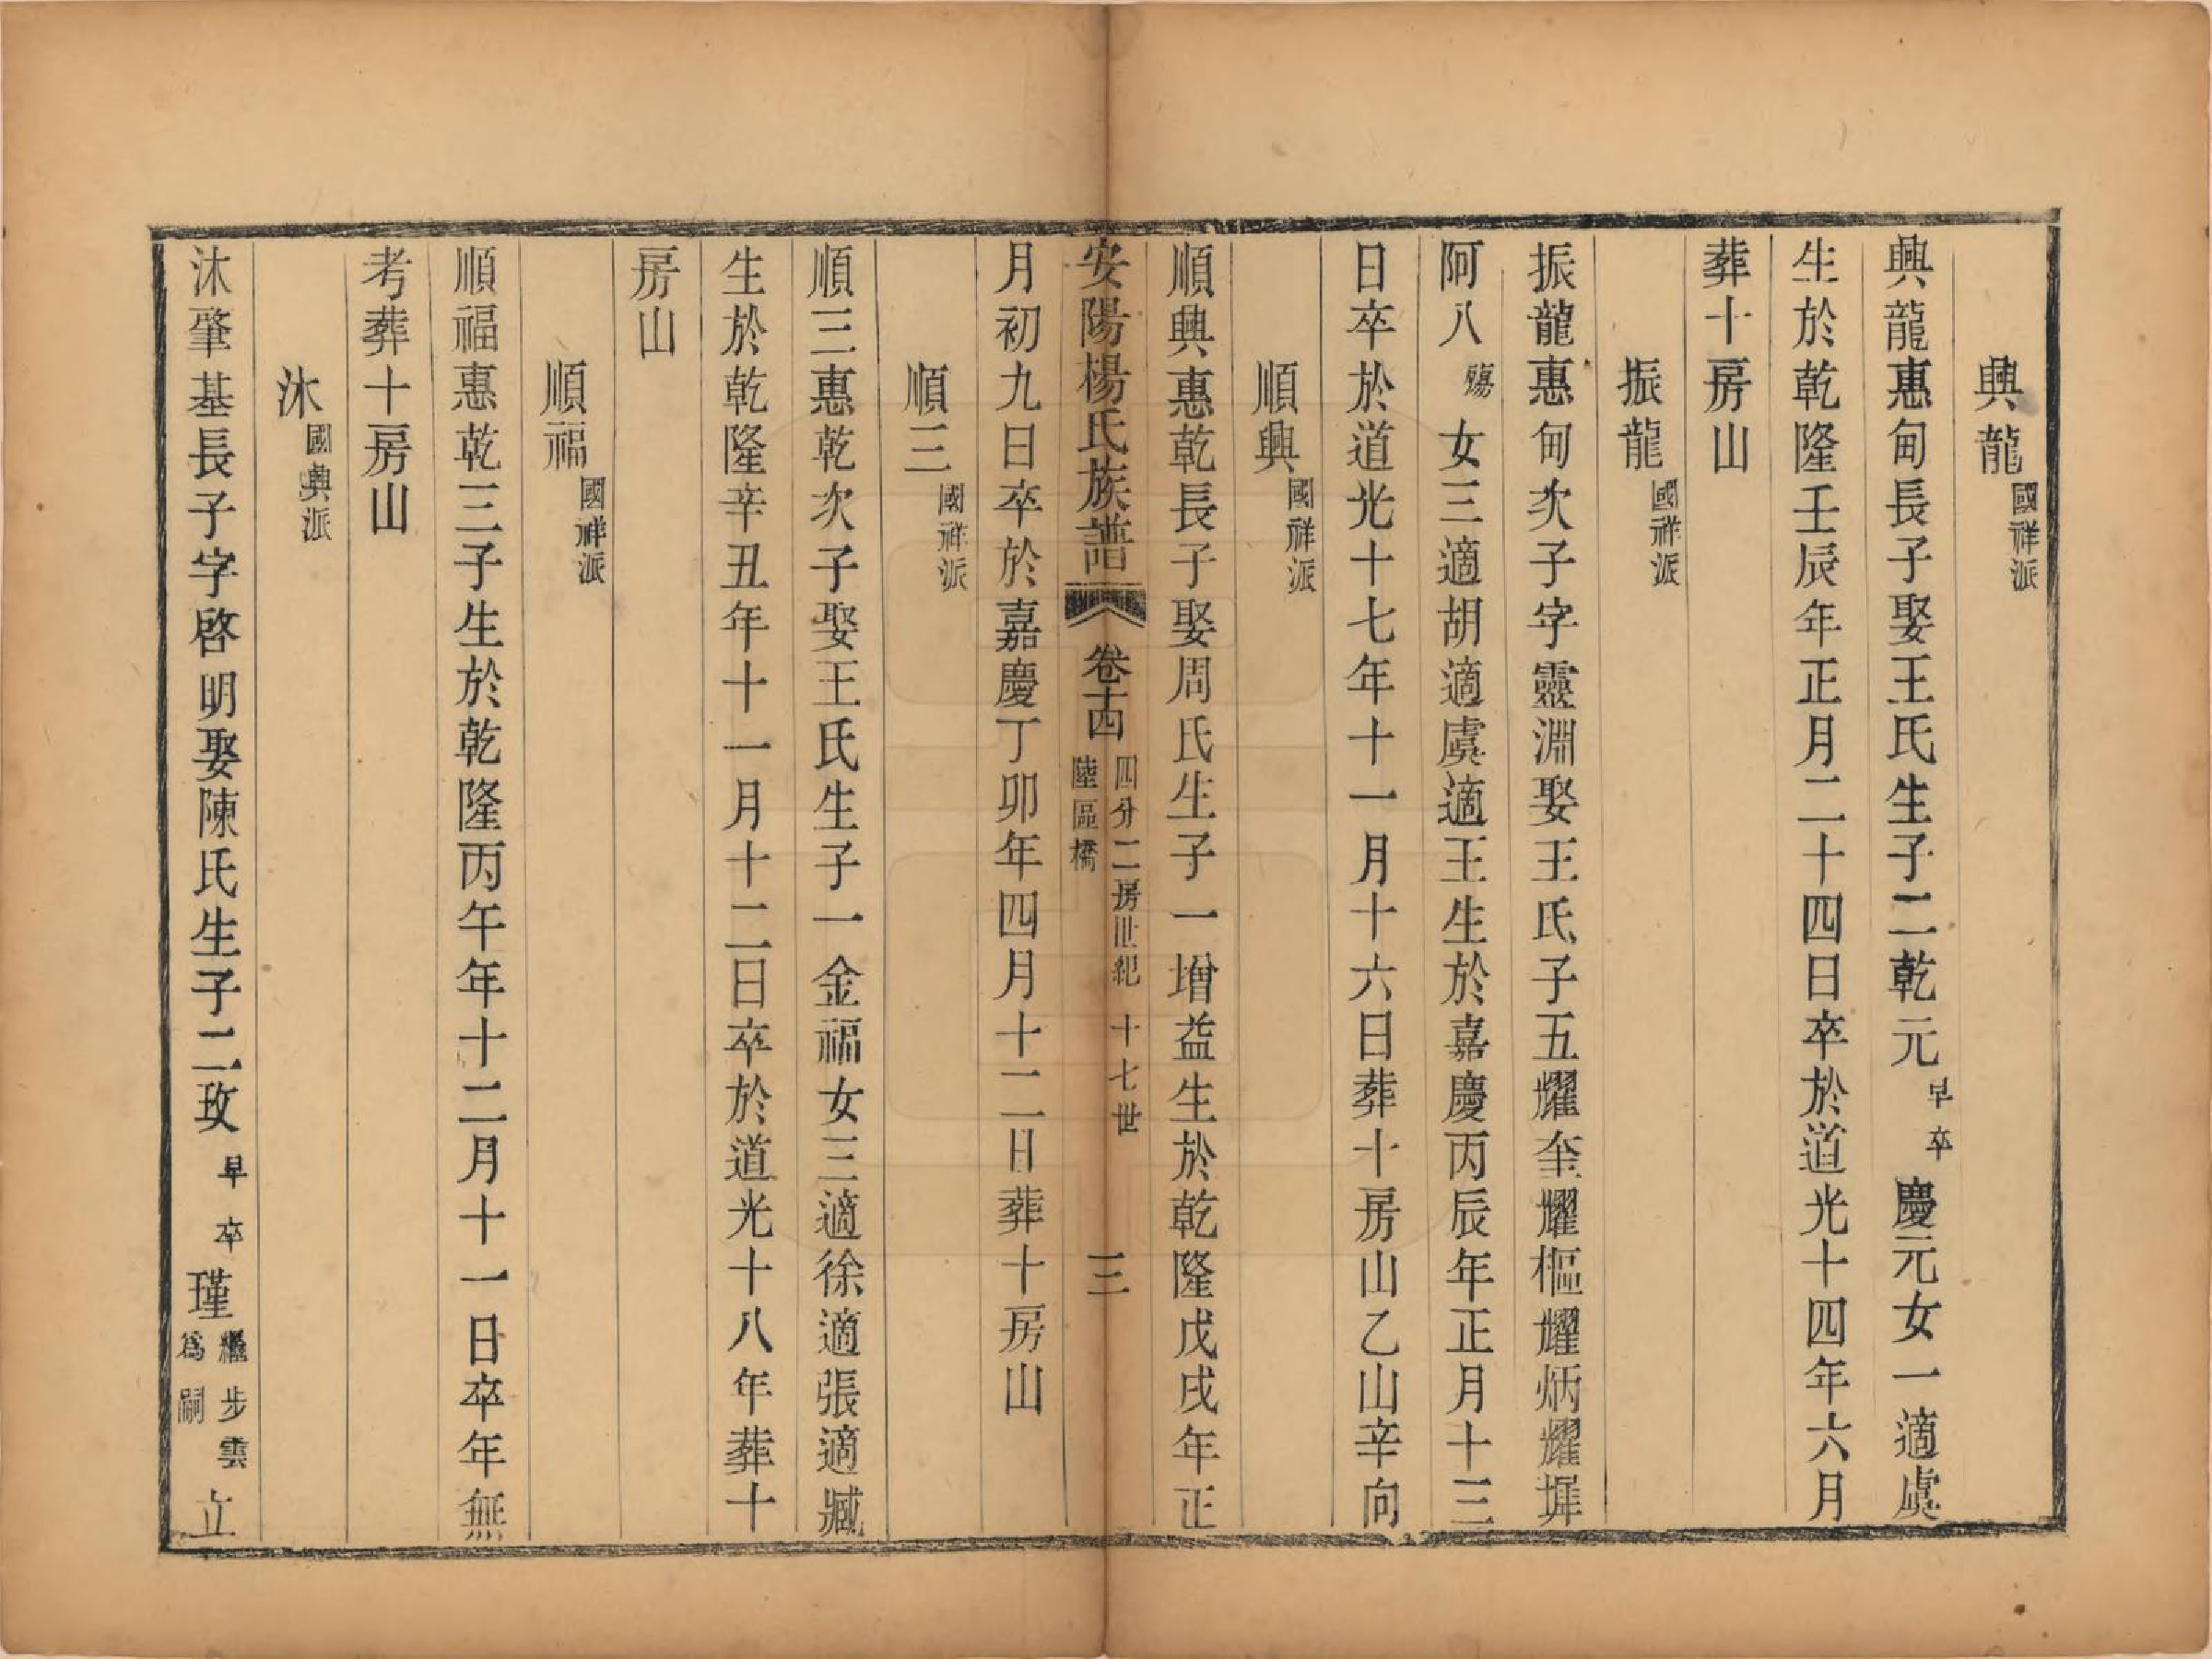 興龍國祥派
興龍惠甸長子娶王氏生子二乾元早卒慶元女一適虞
生於乾隆壬辰年正月二十四日卒於道光十四年六月
葬十房山
振龍國祥派
振龍惠甸次子字靈淵娶王氏子五耀奎耀樞耀炳耀墀
阿八殤女三適胡適虞適王生於嘉慶丙辰年正月十三
日卒於道光十七年十一月十六日葬十房山乙山辛向
順興國祥派
順興惠乾長子娶周氏生子一增益生於乾隆戊戌年正
安陽楊氏族譜 卷十四 四分二房世紀 十七世 陸區橋 三
月初九日卒於嘉慶丁卯年四月十二日葬十房山
順三國祥派
順三惠乾次子娶王氏生子一金福女三適徐適張適臧
生於乾隆辛丑年十一月十二日卒於道光十八年葬十
房山
順福國祥派
順福惠乾三子生於乾隆丙午年十二月十一日卒年無
考葬十房山
沐國興派
沐肇基長子字啓明娶陳氏生子二玫早卒瑾繼步雲為嗣立